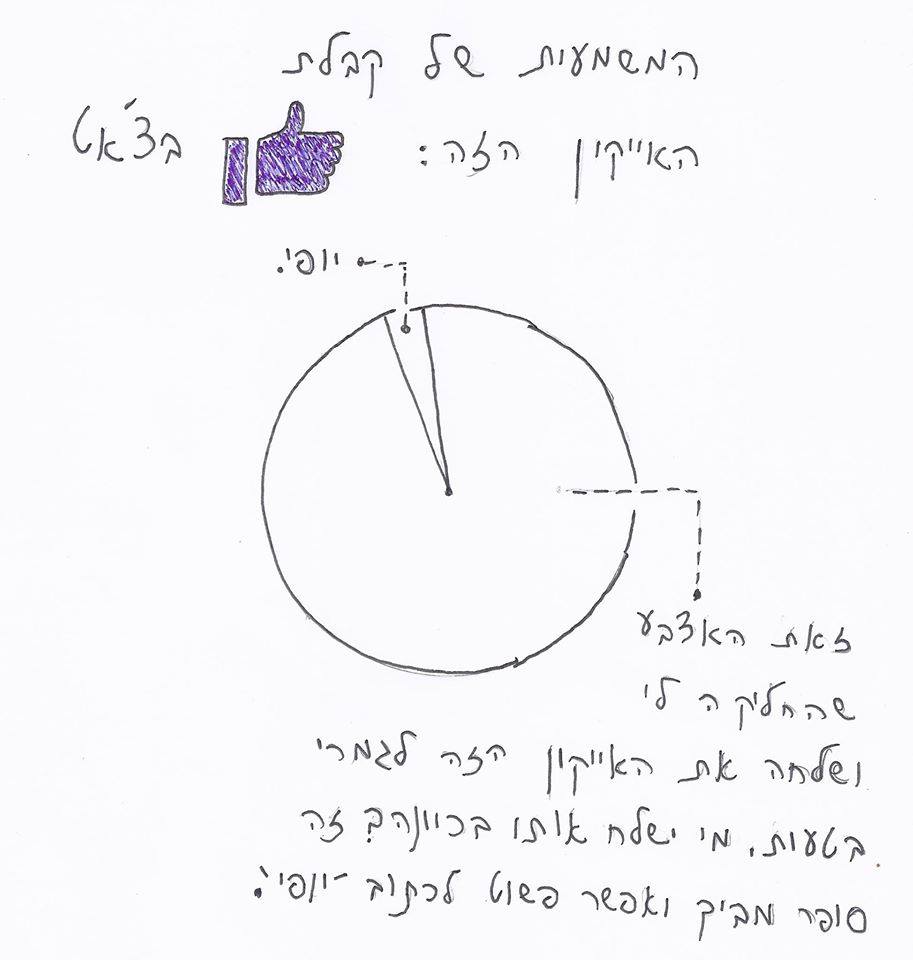 המשמעות של קבלת
האייקון הזה: בצ'אט
יופי.
זאת האצבע
שהחליקה לי
ושלחה את האייקון הזה לגמרי
בטעות. מי ישלח אותו בכוונה? זה
סופר מביך ואפשר פשוט לכתוב "יופי".